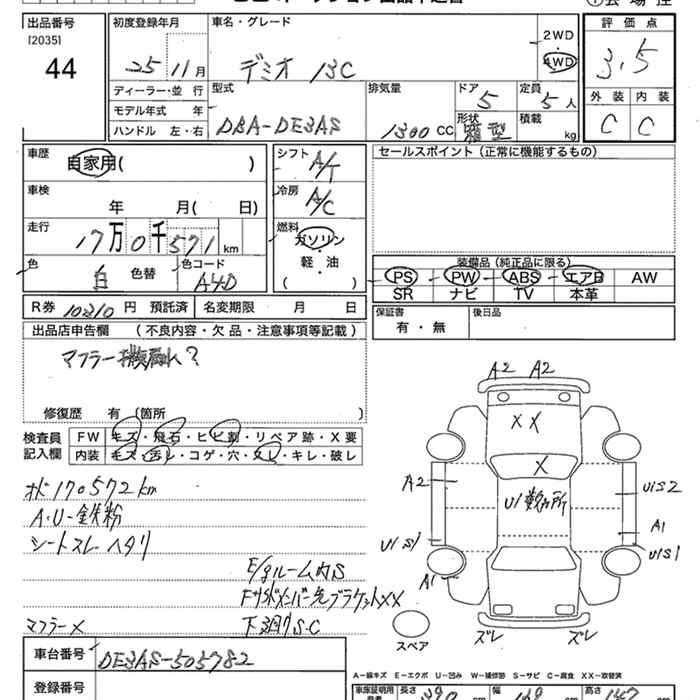 出品番号 初度登録年月 車名・グレード 評価点
[2035]
44 25 11月 デミオ 13C 2WD 4WD 3.5
ディーラー・並 行 型式 排気量 ドア 定員 外装 内装
モデル年式 年 5 5人
ハンドル 左・右 DBA-DE3AS 1300CC 形状 箱型 積載 kg C C
車歴 自家用( ) シフト A/T セールスポイント(正常に機能するもの)
車検 年 月( 日) 冷房 A/C
走行 17万0千571km 燃料 ガソリン
軽・油
( ・ )
色 白 色替 色コード A4D 装備品(純正品に限る)
PS PW ABS エアB AW
SR ナビ TV 本革
R券 10210円 預託済 名変期限 月 日 保証書 有・無 後日品
出品店申告欄 (不良内容・欠品・注意事項等記載)
マフラー ?
修復歴 有(箇所 )
検査員記入欄 FW キズ・飛石・ヒビ割・リペア跡・X要
内装 キズ・汚レ・コゲ・穴・スレ・キレ・破レ
A2 A2
XX
X
A2 U1 数ヶ所 U1S2
A1
U1S1 U1S1
A1
ズレ ズレ
スペア
メ170572km
A・U・鉄粉
シートスレヘタリ
E/gルーム内S
ブラケットXX
マフラーX 下廻りS・C
車台番号 DE3AS-505782
登録番号
A-線キズ E-エクボ U-凹み W-補修跡 S-サビ C-腐食 XX-取替済
長さ 幅 高さ